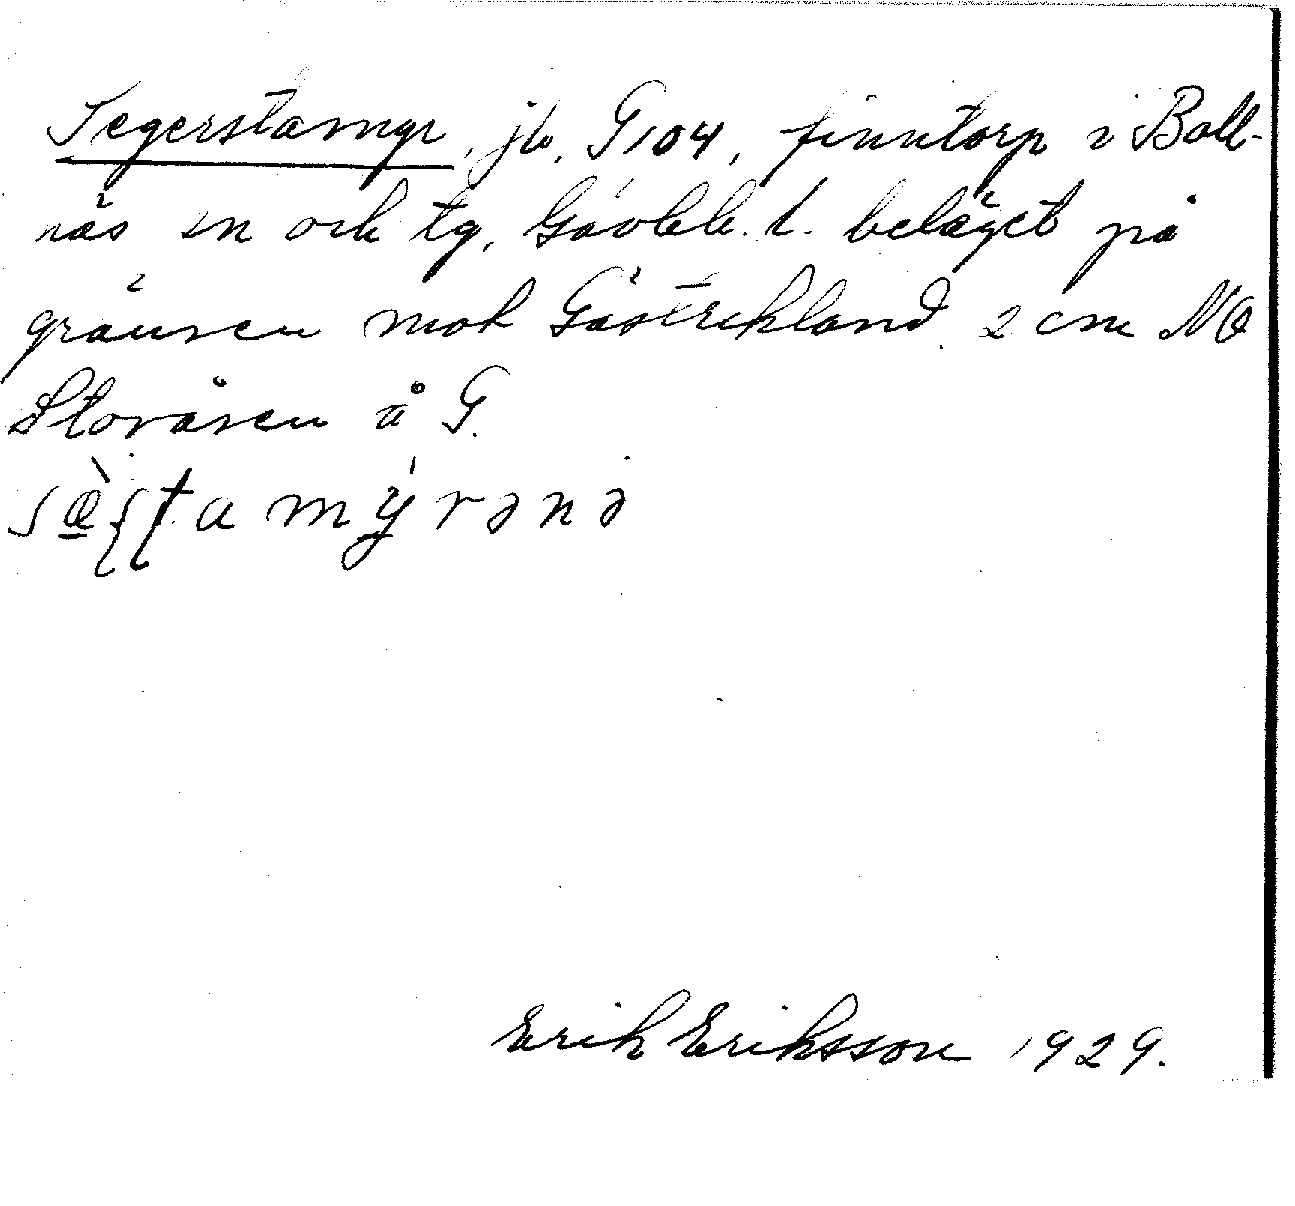 Segerstamyr, jb, G 104, finntorp i Boll-
näs sn och tg, Gävleb. l. beläget på
gränsen mot Gästrikland 2 cm NO
Storåsen å G.
Erik Eriksson 1929.